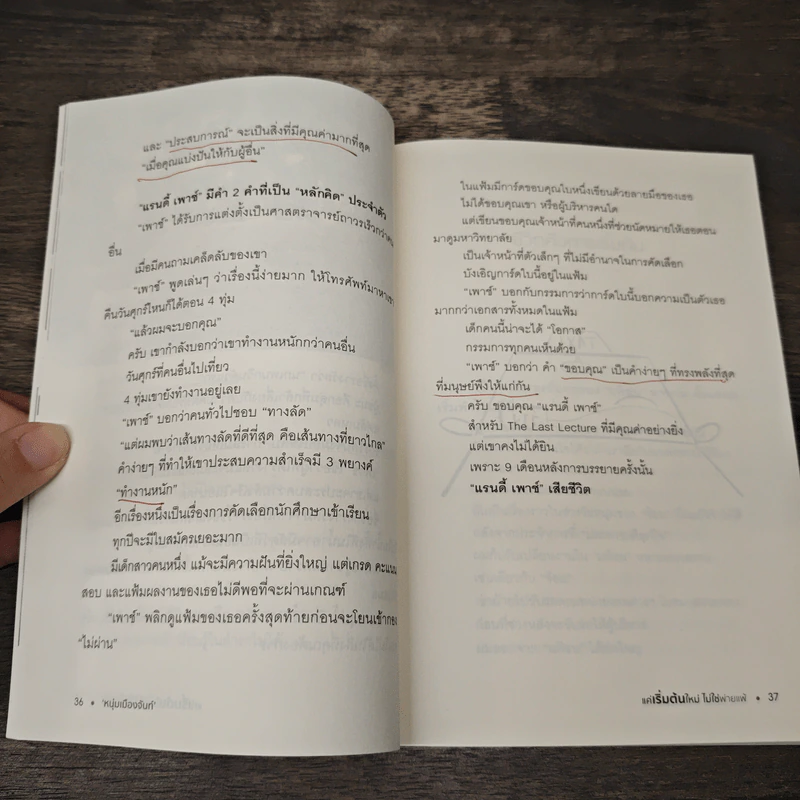 และ "ประสบการณ์" จะเป็นสิ่งที่มีคุณค่ามากที่สุด
"เมื่อคุณแบ่งปันให้กับผู้อื่น"
"แรนดี้ เพาซ์" มีคำ 2 คำที่เป็น "หลักคิด" ประจำตัว
"เพาซ์" ได้รับการแต่งตั้งเป็นศาสตราจารย์ถาวรเร็วกว่าคน
อื่น
เมื่อมีคนถามเคล็ดลับของเขา
"เพาซ์" พูดเล่นๆ ว่าเรื่องนี้ง่ายมาก ให้โทรศัพท์มาหาเขา
คืนวันศุกร์ไหนก็ได้ตอน 4 ทุ่ม
"แล้วผมจะบอกคุณ"
ครับ เขากำลังบอกว่าเขาทำงานหนักกว่าคนอื่น
วันศุกร์ที่คนอื่นไปเที่ยว
4 ทุ่มเขายังทำงานอยู่เลย
"เพาซ์" บอกว่าคนทั่วไปชอบ "ทางลัด"
"แต่ผมพบว่าเส้นทางลัดที่ดีที่สุด คือเส้นทางที่ยาวไกล"
คำง่ายๆ ที่ทำให้เขาประสบความสำเร็จมี 3 พยางค์
"ทำงานหนัก"
อีกเรื่องหนึ่งเป็นเรื่องการคัดเลือกนักศึกษาเข้าเรียน
ทุกปีจะมีใบสมัครเยอะมาก
มีเด็กสาวคนหนึ่ง แม้จะมีความฝันที่ยิ่งใหญ่ แต่เกรด คะแนน
สอบ และแฟ้มผลงานของเธอไม่ดีพอที่จะผ่านเกณฑ์
"เพาซ์" พลิกดูแฟ้มของเธอครั้งสุดท้ายก่อนจะโยนเข้ากอง
"ไม่ผ่าน"
36 • 'หนุ่มเมืองจันท์'
ในแฟ้มมีการ์ดขอบคุณใบหนึ่งเขียนด้วยลายมือของเธอ
ไม่ได้ขอบคุณเขา หรือผู้บริหารคนใด
แต่เขียนขอบคุณเจ้าหน้าที่คนหนึ่งที่ช่วยนัดหมายให้เธอตอน
มาดูมหาวิทยาลัย
เป็นเจ้าหน้าที่ตัวเล็กๆ ที่ไม่มีอำนาจในการคัดเลือก
บังเอิญการ์ดใบนี้อยู่ในแฟ้ม
"เพาซ์" บอกกับกรรมการว่าการ์ดใบนี้บอกความเป็นตัวเธอ
มากกว่าเอกสารทั้งหมดในแฟ้ม
เด็กคนนี้น่าจะได้ "โอกาส"
กรรมการทุกคนเห็นด้วย
"เพาซ์" บอกว่า คำ "ขอบคุณ" เป็นคำง่ายๆ ที่ทรงพลังที่สุด
ที่มนุษย์พึงให้แก่กัน
ครับ ขอบคุณ "แรนดี้ เพาซ์"
สำหรับ The Last Lecture ที่มีคุณค่าอย่างยิ่ง
แต่เขาคงไม่ได้ยิน
เพราะ 9 เดือนหลังการบรรยายครั้งนั้น
"แรนดี้ เพาซ์" เสียชีวิต
แค่เริ่มต้นใหม่ ไม่ใช่พ่ายแพ้ • 37